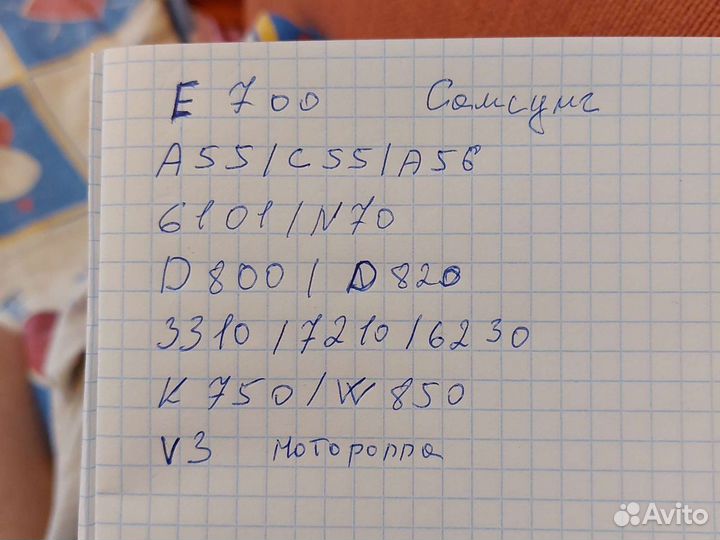 E 700 Самсунг
A55/C55/A56
6101/N70
D800/D820
3310/7210/6230
K750/W850
V3 моторолла
Avito